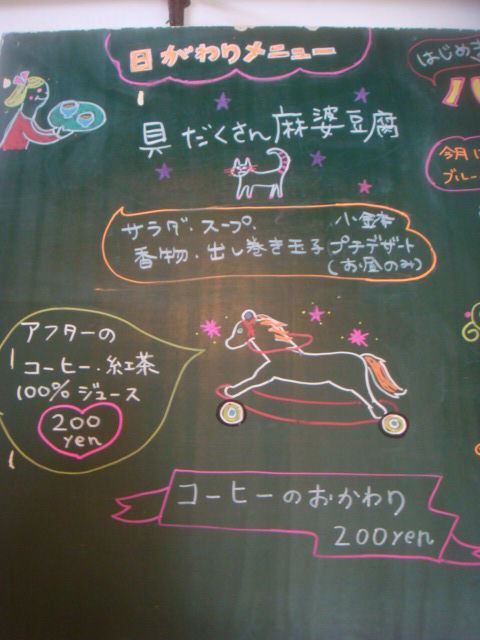 日がわりメニュー
具だくさん麻婆豆腐
サラダ・スープ、小鉢
香物・出し巻き玉子 プチデザート
(お昼のみ)
アフターの
コーヒー・紅茶
100%ジュース
200
yen
コーヒーのおかわり
200yen
はじめ
今月
ブルー